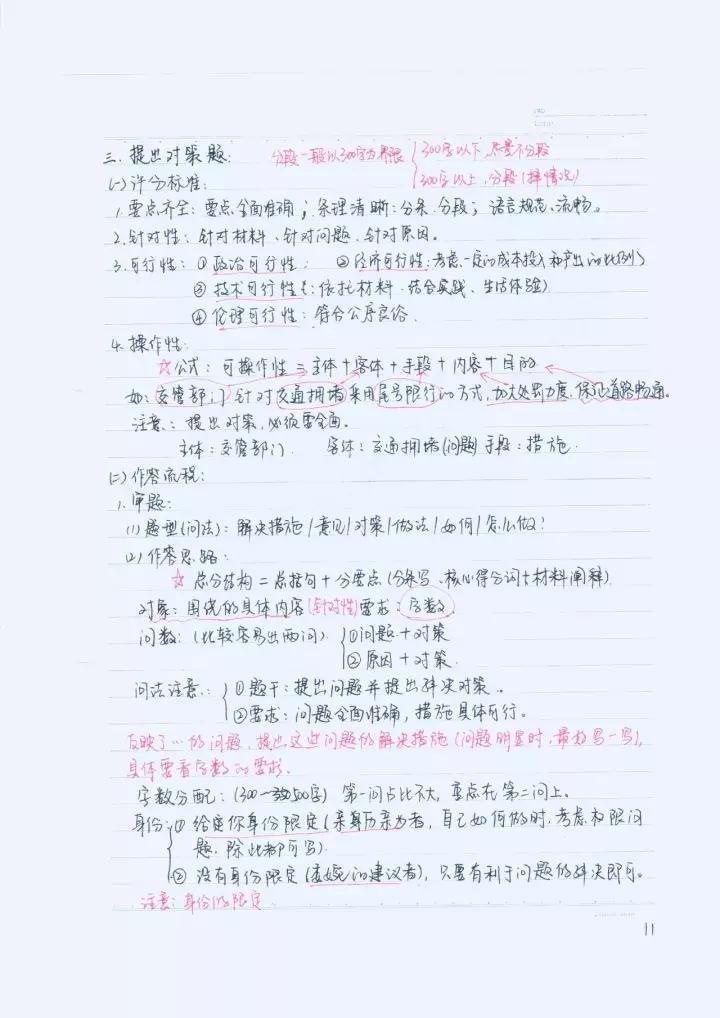 三、提出对策题: 分段一般以300字为界限 { 300字以下,尽量不分段
300字以上,分段(择情况)
(一)评分标准:
1.要点齐全:要点全面准确;条理清晰:分条、分段;语言规范、流畅。
2.针对性:针对材料、针对问题、针对原因。
3.可行性:①政治可行性: ②经济可行性:考虑一定的成本投入和产出的比例
③技术可行性:依托材料、结合实践、生活体验
④伦理可行性:符合公序良俗.
4.操作性:
☆公式:可操作性=主体+客体+手段+内容+目的
如:交管部门针对交通拥堵采用尾号限行的方式,加大处罚力度,保证道路畅通。
注意:提出对策,必须要全面。
主体:交管部门. 客体:交通拥堵(问题) 手段:措施.
(二)作答流程:
1.审题:
(1)题型(问法):解决措施/意见/对策/做法/如何/怎么做?
(2)作答思路:
☆总分结构=总括句+分要点(分条写、核心得分词+材料阐释)
对象:围绕的具体内容(针对性)要求:字数
问数:(比较容易出两问) { ①问题+对策
②原因+对策.
问法注意: { ①题干:提出问题并提出解决对策。
②要求:问题全面准确,措施具体可行。
反映了…的问题,提出这些问题的解决措施(问题明显时,最好写一写),
具体要看字数的要求.
字数分配:(300—500字) 第一问占比不大,重点在第二问上。
身份: { ①给定你身份限定(亲身历亲为者,自己如何做时,考虑权限问
题,除此都可写)
②没有身份限定(委婉的建议者),只要有利于问题的解决即可。
注意:身份的限定
11